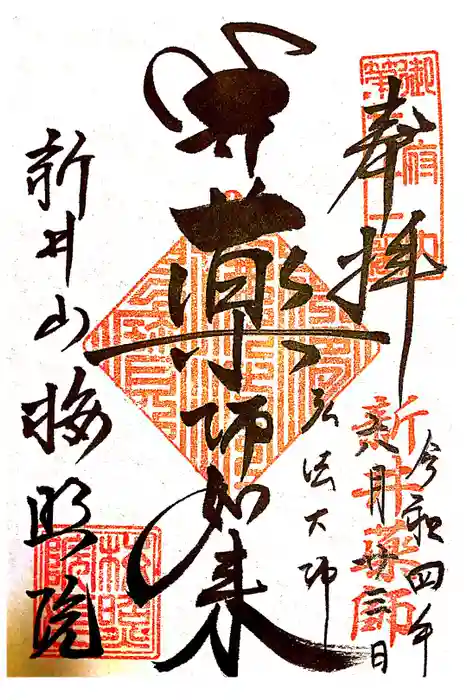 奉拝
令和四年
八月廿三日
新井薬師
薬師如来
弘法大師
新井山梅照院
梅照院